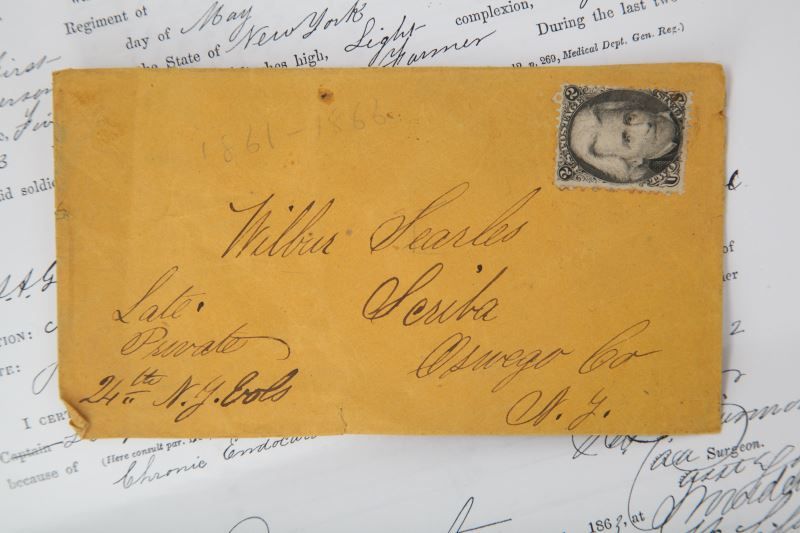 Regiment of
day of May
the State of New York
complexion,
During the last two
Light
Farmer
p. 269, Medical Dept. Gen. Reg.)
1861-1866
Wilbur Searles
Scriba
Oswego Co
N. Y.
Late
Private
24th N. Y. Vols
I CERT
Captain
because of
(Here consult par.
Chronic
Surgeon.
1863, at